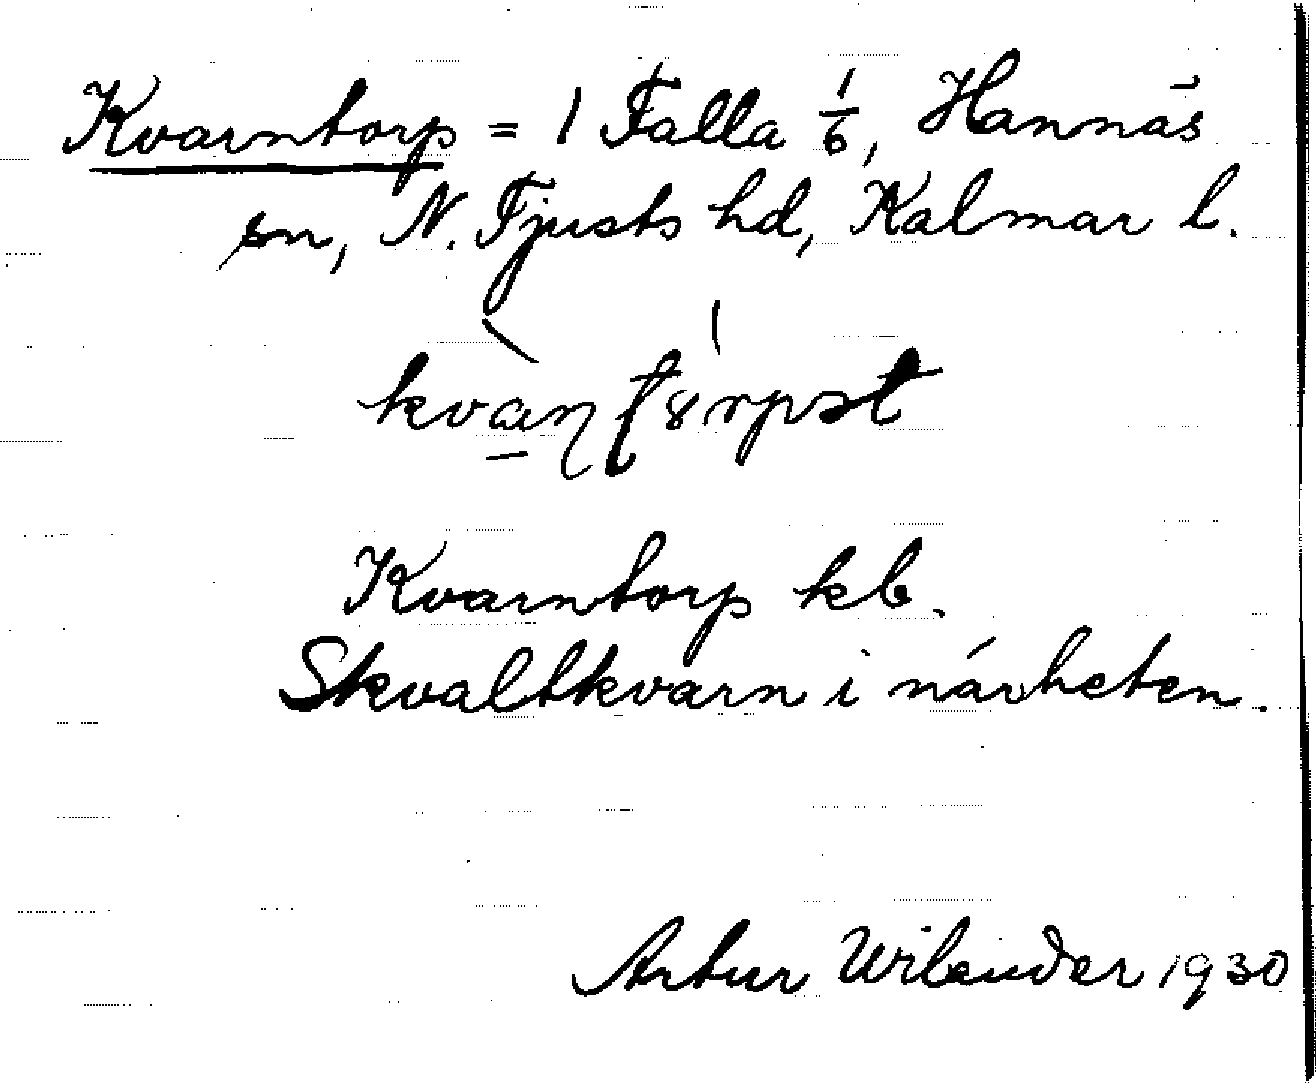 Kvarntorp = 1 Falla 1/6, Hannäs
sn, N. Tjusts hd, Kalmar l.
Kvarntorp kb.
Skvaltkvarn i närheten.
Artur Wilander 1930